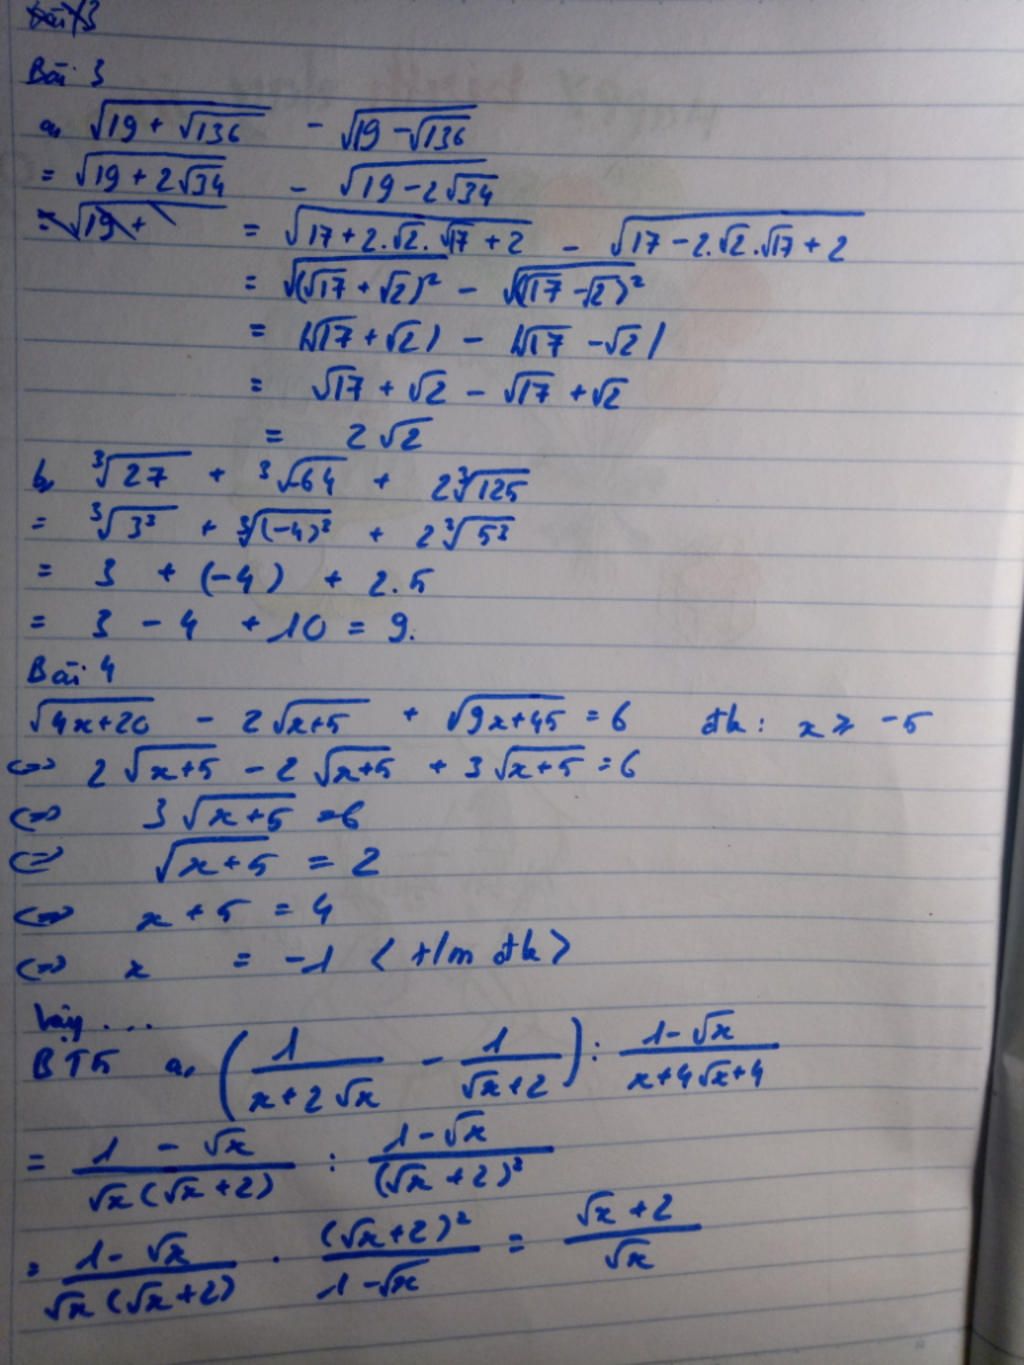 Bài 3
a, √(19 + √136) - √(19 - √136)
= √(19 + 2√34) - √(19 - 2√34)
= √(19 + = √(17 + 2.√2.√17 + 2) - √(17 - 2.√2.√17 + 2)
= √((√17 + √2)²) - √((√17 - √2)²)
= |√17 + √2| - |√17 - √2|
= √17 + √2 - √17 + √2
= 2√2
b, ³√27 + ³√-64 + 2³√125
= ³√3³ + ³√(-4)³ + 2³√5³
= 3 + (-4) + 2.5
= 3 - 4 + 10 = 9.
Bài 4
√(4x+20) - 2√(x+5) + √(9x+45) = 6 đk: x ⩾ -5
<=> 2√(x+5) - 2√(x+5) + 3√(x+5) = 6
<=> 3√(x+5) = 6
<=> √(x+5) = 2
<=> x + 5 = 4
<=> x = -1 < t/m đk >
Vậy ...
BT5 a, (1/(x+2√x) - 1/(√x+2)) : (1-√x)/(x+4√x+4)
= (1 - √x)/(√x(√x+2)) : (1-√x)/(√x+2)²
= (1-√x)/(√x(√x+2)) . (√x+2)²/(1-√x) = (√x+2)/√x